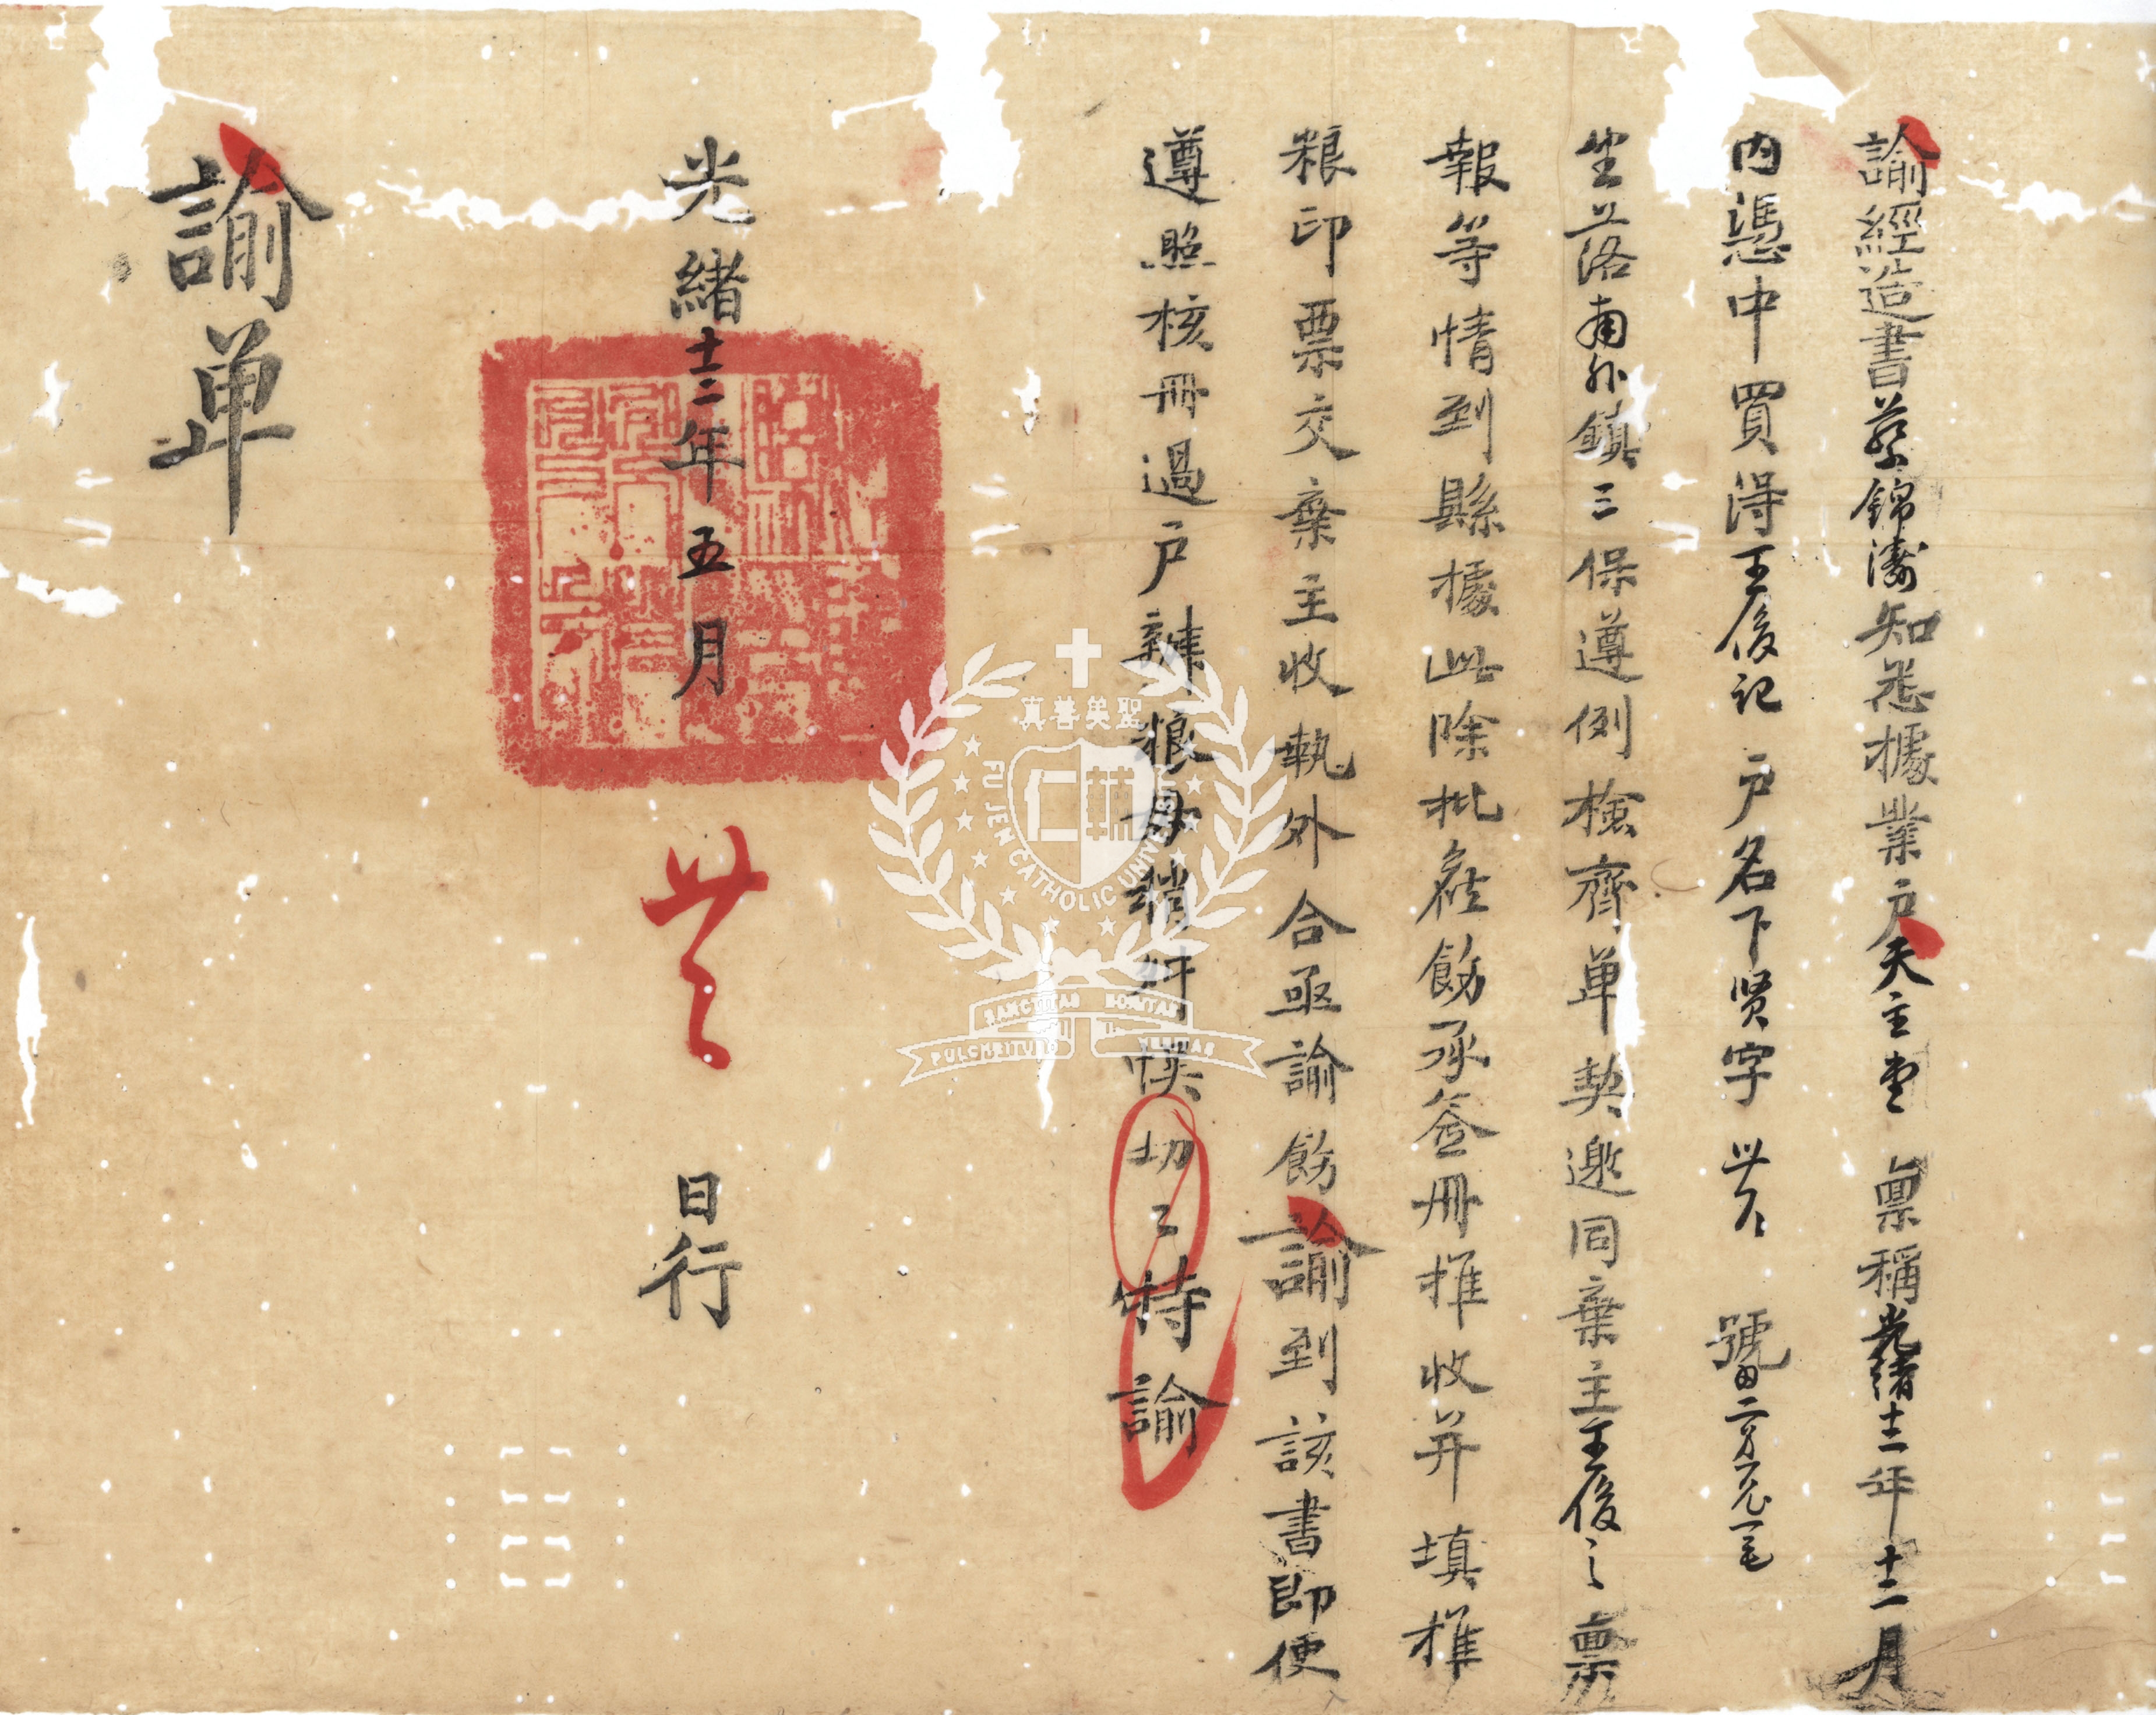 諭經造書蔡錦濤知悉據業戶天主堂稟稱光緒十二年十二月
內憑中買得王俊記戶名下賢字號田二分九厘一毛
坐落南外鎮三保遵例檢齊單契邀同棄主王俊之稟
報等情到縣據此除批發飭承簽冊推收并填推
粮印票交棄主收執外合亟諭飭諭到該書即便
遵照核冊過户辦粮毋稍舛悞切〻特諭
光緒十三年五月廿日行
諭单
真善美聖
FU JEN CATHOLIC UNIVERSITY
SANCTITAS BONITAS
PULCHRITUDO VERITAS